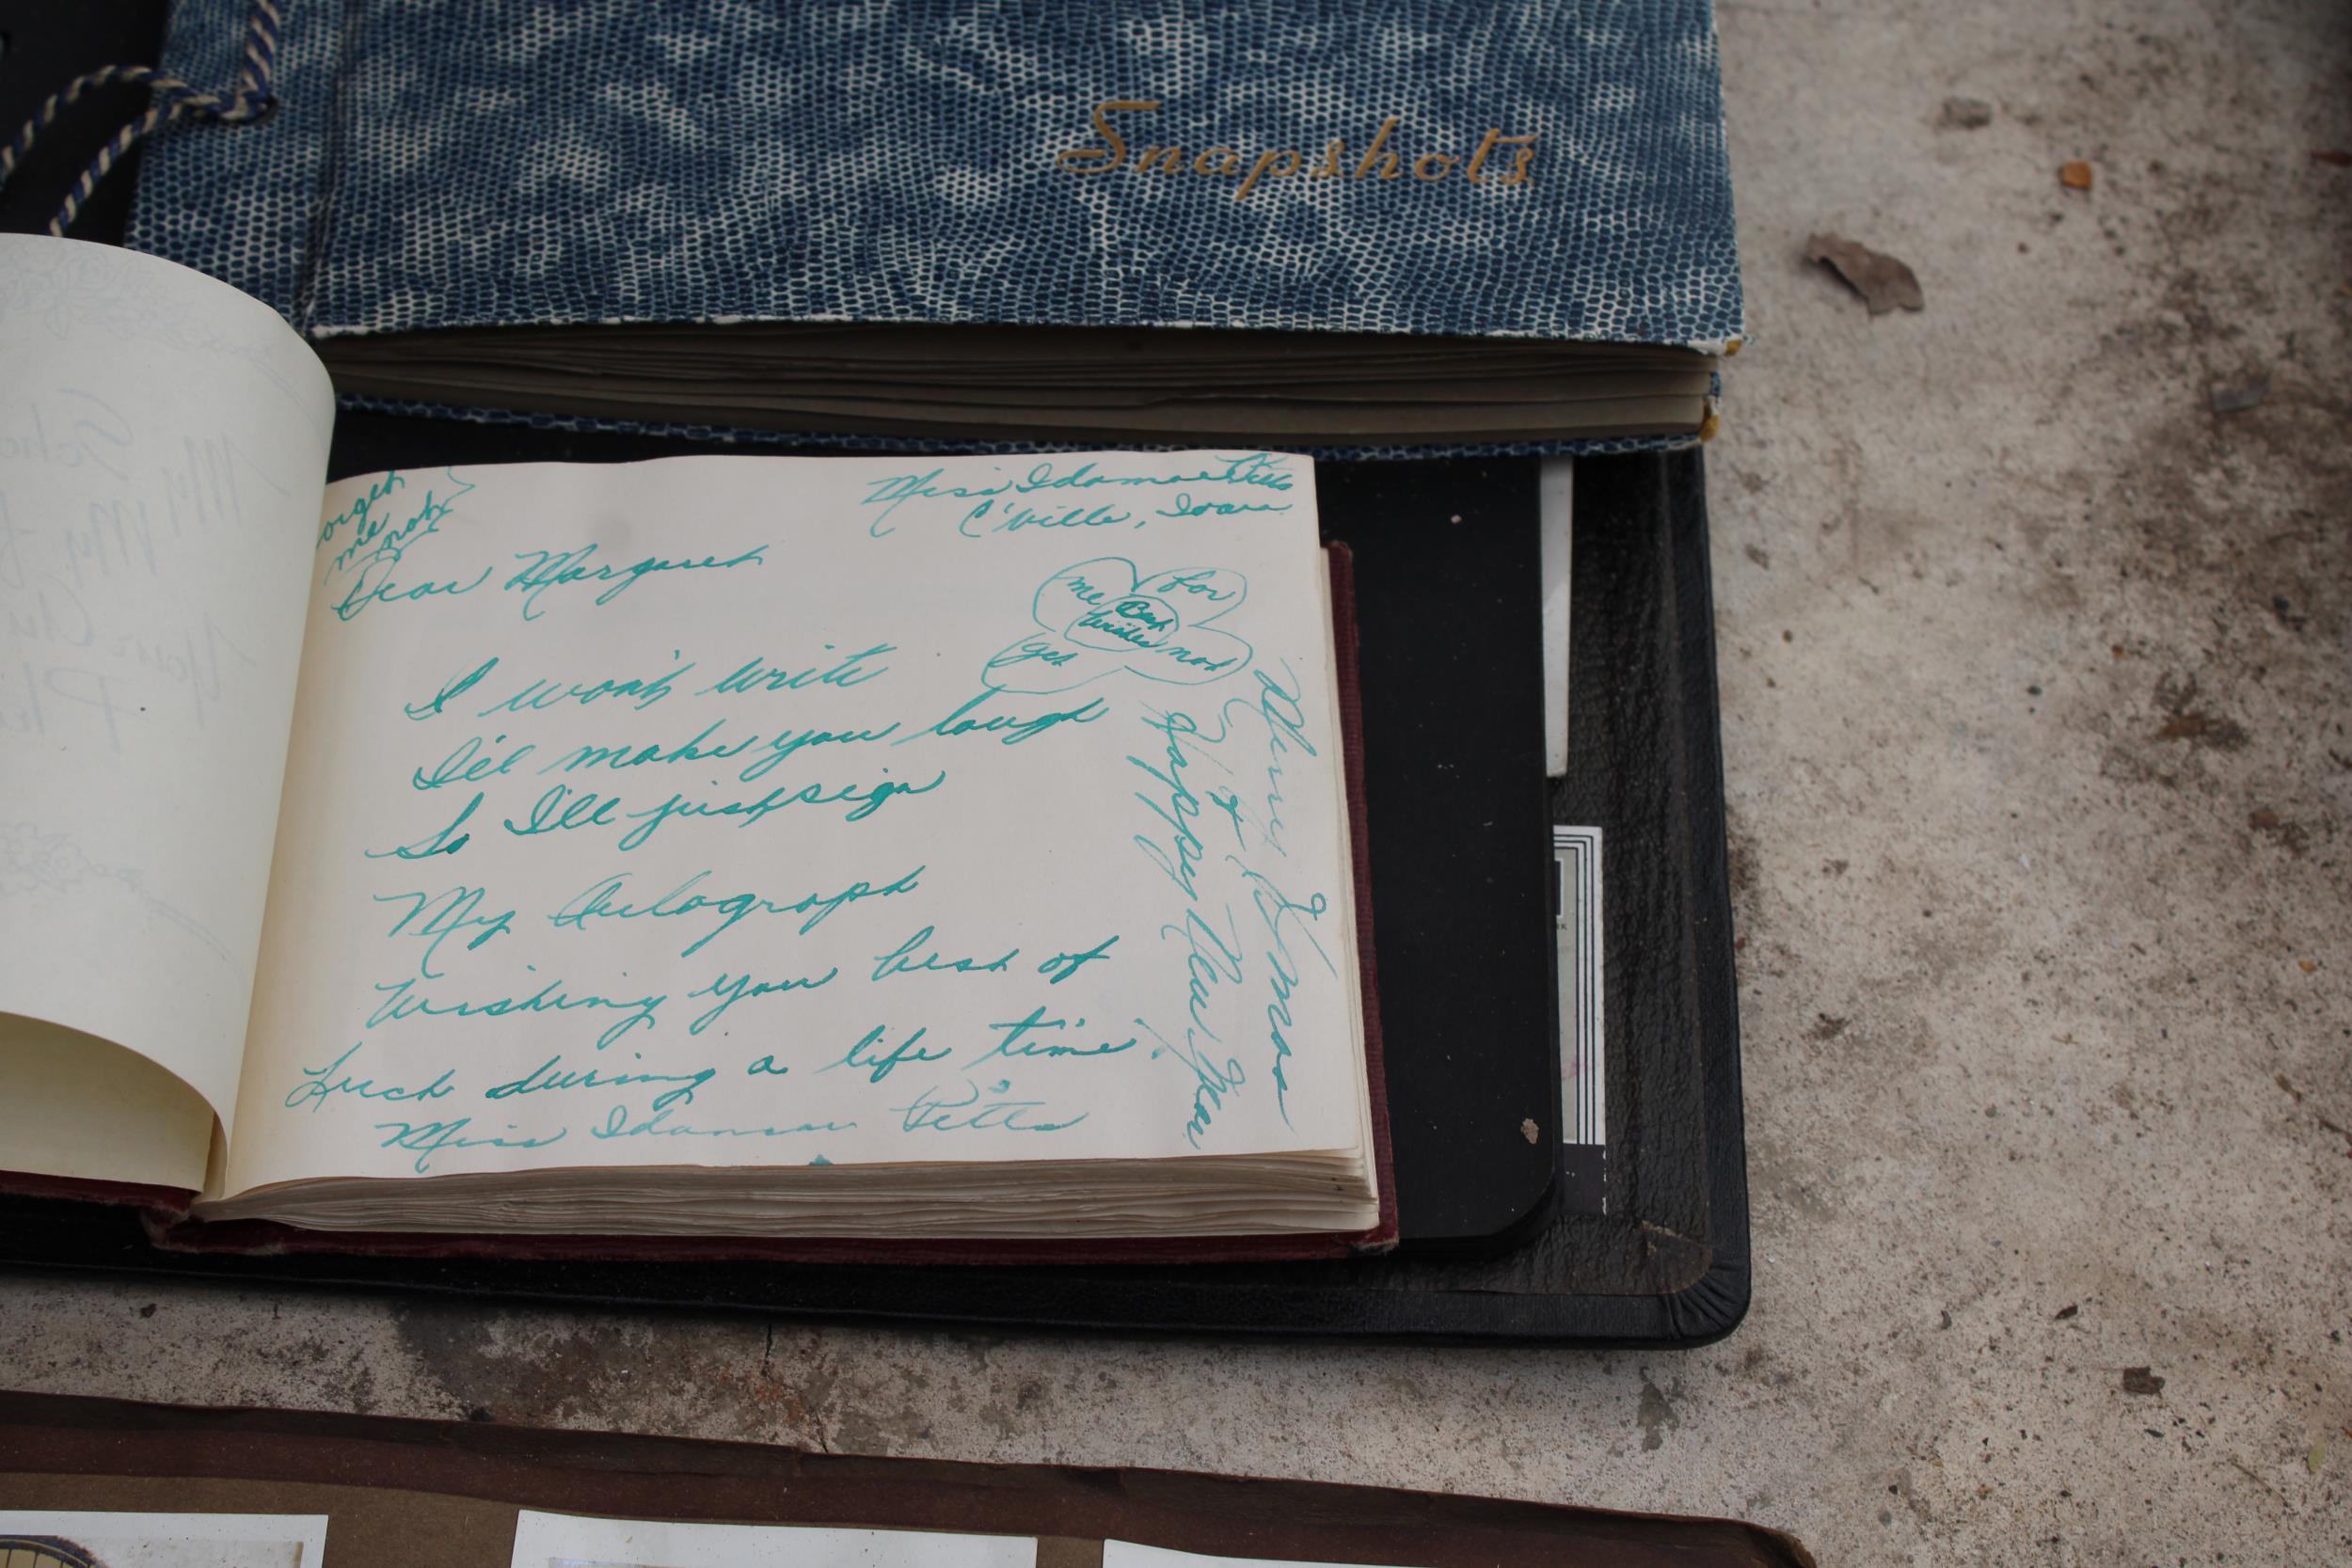 Snapshots
orget
me
not
Miss Idamae Pitts
C'ville, Iowa
Dear Margaret
me for
Best
Wishes
get not
I won't write
I'el make you laugh
So I'll just sign
My Autograph
Wishing you best of
Luck during a life time.
Miss Idamae Pitts
Merry X'mas
&
Happy New Year
My
My
Your